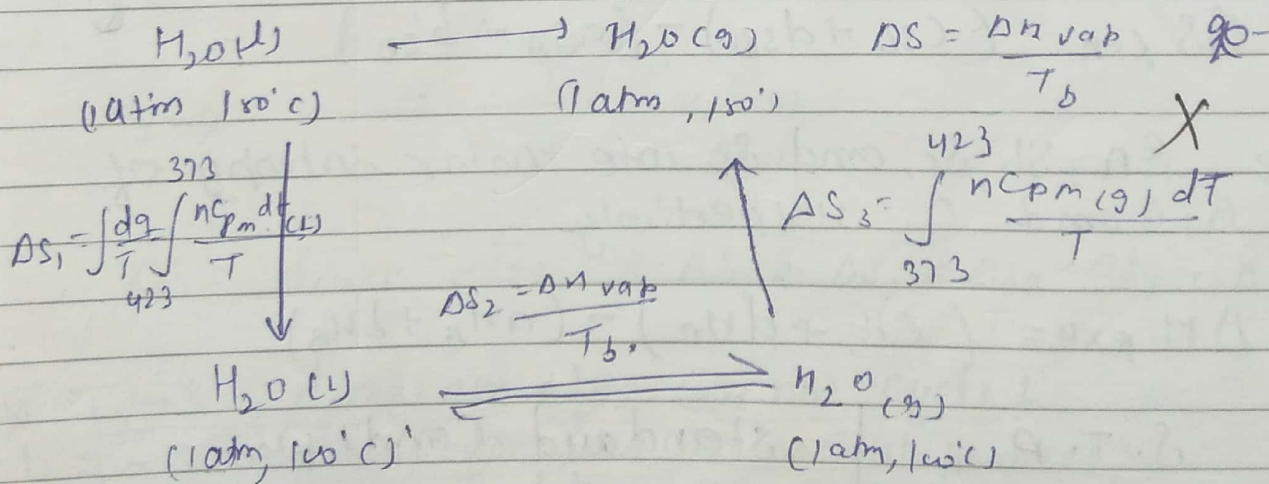 H₂O(l) ⟶ H₂O(g) ΔS = ΔH vap / T_b
(1 atm 150°C) (1 atm, 150°)
X
ΔS₁ = ∫ dq/T ∫_423^373 nCpm dT (l) / T
ΔS₃ = ∫_373^423 nCpm(g) dT / T
ΔS₂ = ΔH vap / T_b.
H₂O (l) ⇌ H₂O (g)
(1 atm, 100°C) (1 atm, 100°C)